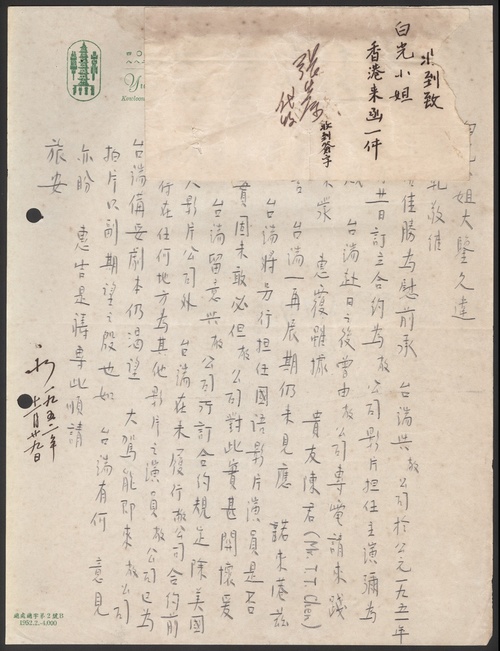 到致
白光小姐
香港来函一件
收到簽字
代收
姐大鑒久達
敬惟
佳勝為慰前承 台端與敝公司於公元一九五一年
廿一日訂立合約為敝公司影片担任主演彌為
台端赴日之後曾由敝公司專電請來踐
未蒙 惠覆雖據 貴友陳君(Mr. T.T. Chen)
台端一再展期仍未見應 諾來港茲
台端將另行担任國語影片演員是否
實固未敢必但敝公司對此實甚開懷爰
台端留意與敝公司所訂合約規定除美國
人影片公司外 台端在未履行敝公司合約前
得在任何地方為其他影片之演員敝公司已為
台端備妥劇本仍渴望 大駕能即來敝公司
拍片以副期望之殷也如 台端有何 意見
亦盼 惠告是禱專此順請
旅安
一九五二年
月廿九日
Yu
Kowloon
1952.2.-4,000